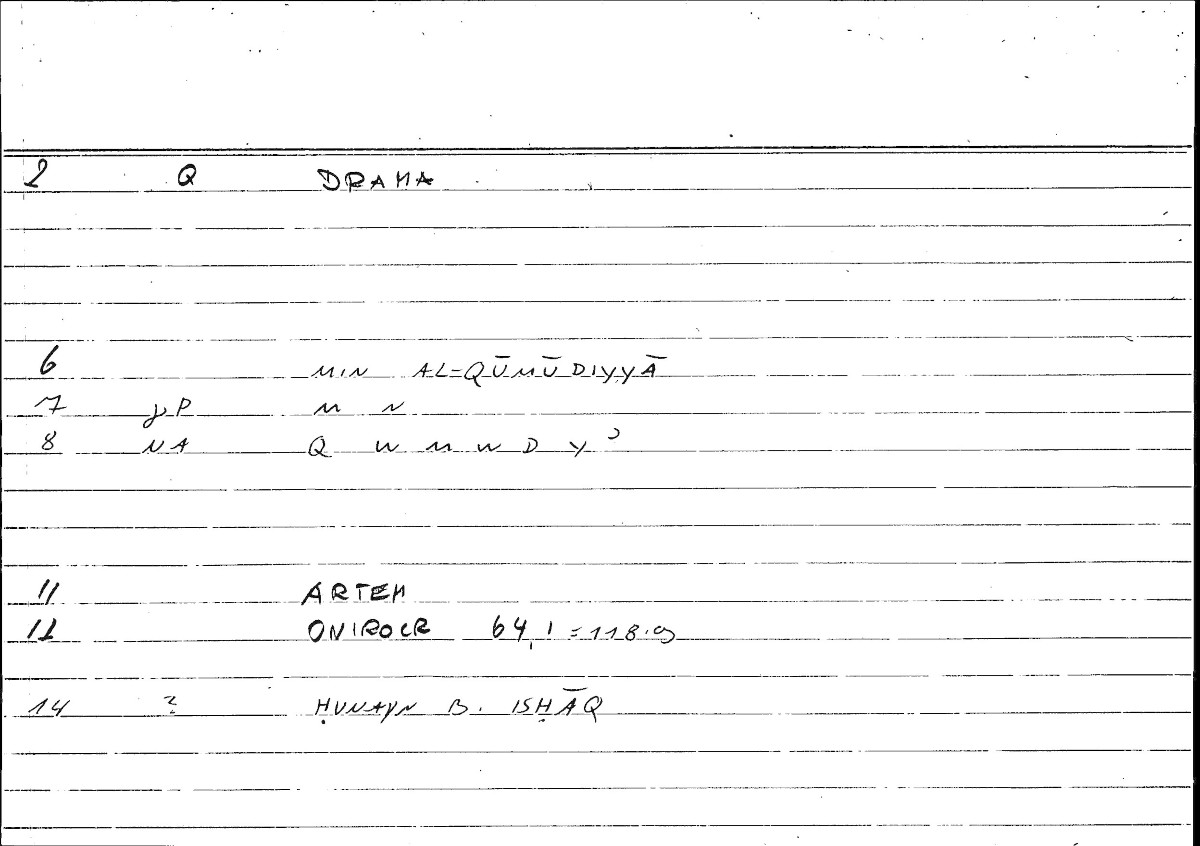 2 Q DRAMA
6 MIN AL-QŪMŪDIYYĀ
7 γP M N
8 NA Q W M W D Y ʾ
11 ARTEM
12 ONIROCR 64,1 = 118.9
14 ? ḤUNAYN B. ISḤĀQ